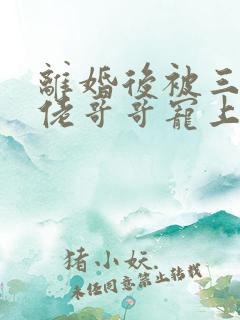 離婚後被三
佬哥哥寵上
猪小妖.
未任同意禁止转载